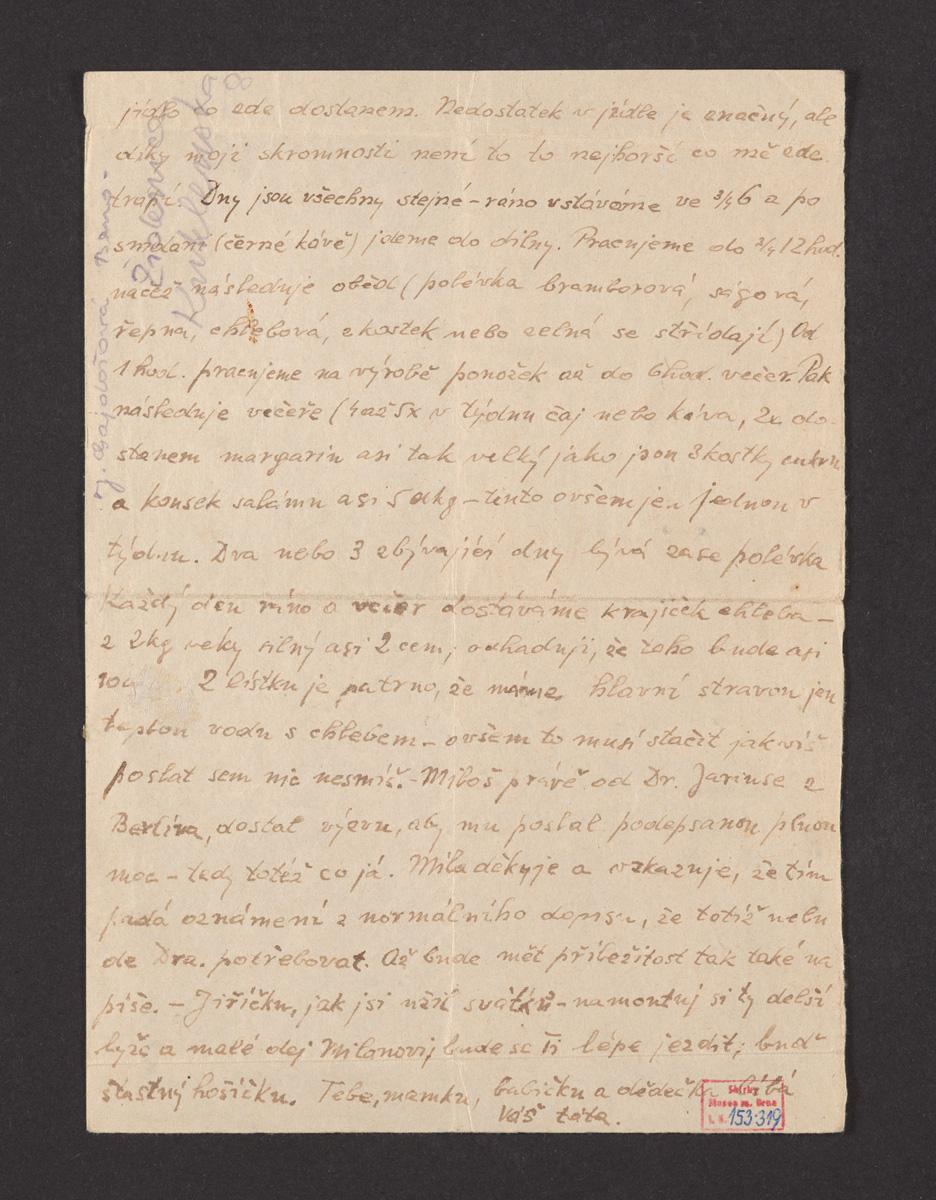 jídlo co zde dostanem. Nedostatek v jídle je značný, ale
díky mojí skromnosti není to to nejhorší co mě zde
trápí. Dny jsou všechny stejné – ráno vstáváme ve 3/4 6 a po
snídani (černé kávě) jdeme do dílny. Pracujeme do 3/4 12 hod.
načež následuje oběd (polévka bramborová, ságová,
řepna, chlebová, z kostek nebo zelná se střídají) Od
1 hod. pracujeme na výrobě ponožek až do 6 hod. večer. Pak
následuje večeře (4 až 5x v týdnu čaj nebo káva, 2x do-
stanem margarin asi tak velký jako jsou 3 kostky cukru
a kousek salámu asi 5 dkg – tento ovšem jen jednou v
týdnu. Dva nebo 3 zbývající dny bývá zase polévka
Každý den ráno a večer dostáváme krajíček chleba –
z 2kg veky silný asi 2 cem; odhaduji, že toho bude asi
Z lístku je patrno, že máme hlavní stravou jen
teplou vodu s chlebem – ovšem to musí stačit jak víš
poslat sem nic nesmíš. – Miloš právě od Dr. Jariuse z
Berlína, dostal výzvu, aby mu poslal podepsanou plnou
moc – tedy totéž co já. Míla děkuje a vzkazuje, že tím
padá oznámení z normálního dopisu, že totiž nebu
de Dra. potřebovat. Až bude mět příležitost tak také na
píše. – Jiříčku, jak jsi užil svátků – namontuj si ty delší
lyže a malé dej Milanovi; bude se ti lépe jezdit; buď
šťastný hošíčku. Tebe, mamku, babičku a dědečka líbá
Váš táta.
J. Gajdošová Brno -
Židenice
Sbírky
Musea m. Brna
i. č. 153.319